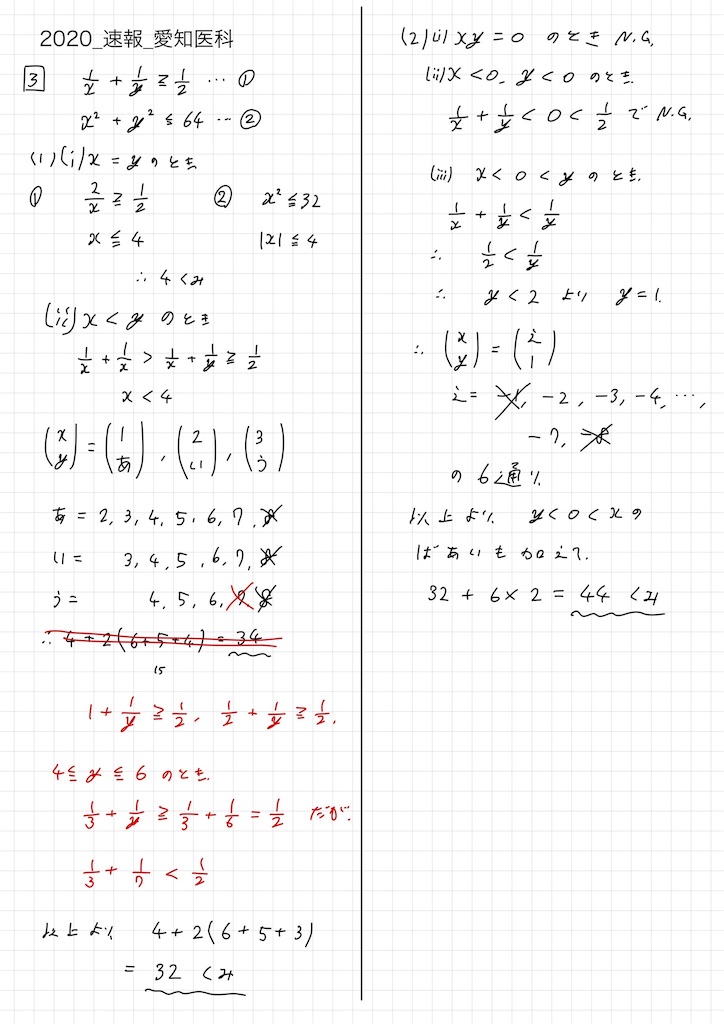 2020_速報_愛知医科
3 1/x + 1/y ≧ 1/2 … ①
x² + y² ≦ 64 … ②
(1) (i) x = y のとき
① 2/x ≧ 1/2 ② x² ≦ 32
x ≦ 4 |x| ≦ 4
∴ 4 コ
(ii) x < y のとき
1/x + 1/x > 1/x + 1/y ≧ 1/2
x < 4
(x y) = (1 あ), (2 い), (3 う)
あ = 2, 3, 4, 5, 6, 7, 8
い = 3, 4, 5, 6, 7, 8
う = 4, 5, 6, 7, 8
∴ 4 + 2(6+5+4) = 34
15
1 + 1/y ≧ 1/2, 1/2 + 1/y ≧ 1/2,
4 ≦ y ≦ 6 のとき
1/3 + 1/y ≧ 1/3 + 1/6 = 1/2 だが.
1/3 + 1/7 < 1/2
以上より 4 + 2(6 + 5 + 3)
= 32 コ
(2) (i) xy = 0 のとき N.G.
(ii) x < 0, y < 0 のとき.
1/x + 1/y < 0 < 1/2 で N.G.
(iii) x < 0 < y のとき.
1/x + 1/y < 1/y
∴ 1/2 < 1/y
∴ y < 2 より y = 1.
∴ (x y) = (え 1)
え = -1, -2, -3, -4, …,
-7, -8
の 6通り.
以上より y < 0 < x の
ばあいも加えて.
32 + 6 × 2 = 44 コ